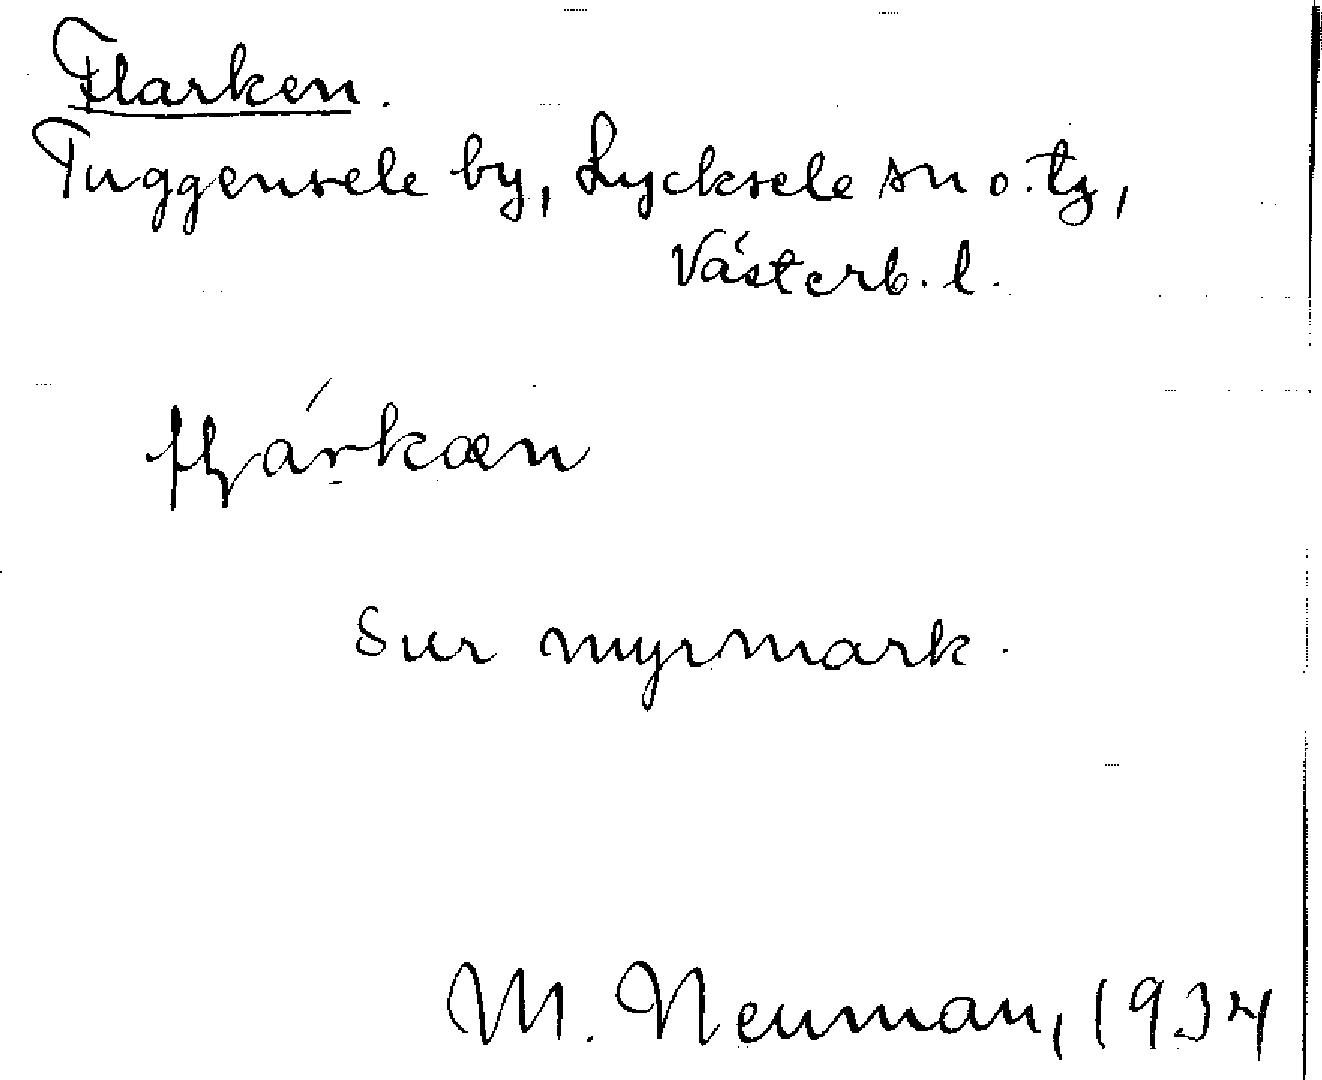 Flarken.
Tuggensele by, Lycksele sn o. tg,
Västerb. l.
Sur myrmark.
M. Neuman, 1934